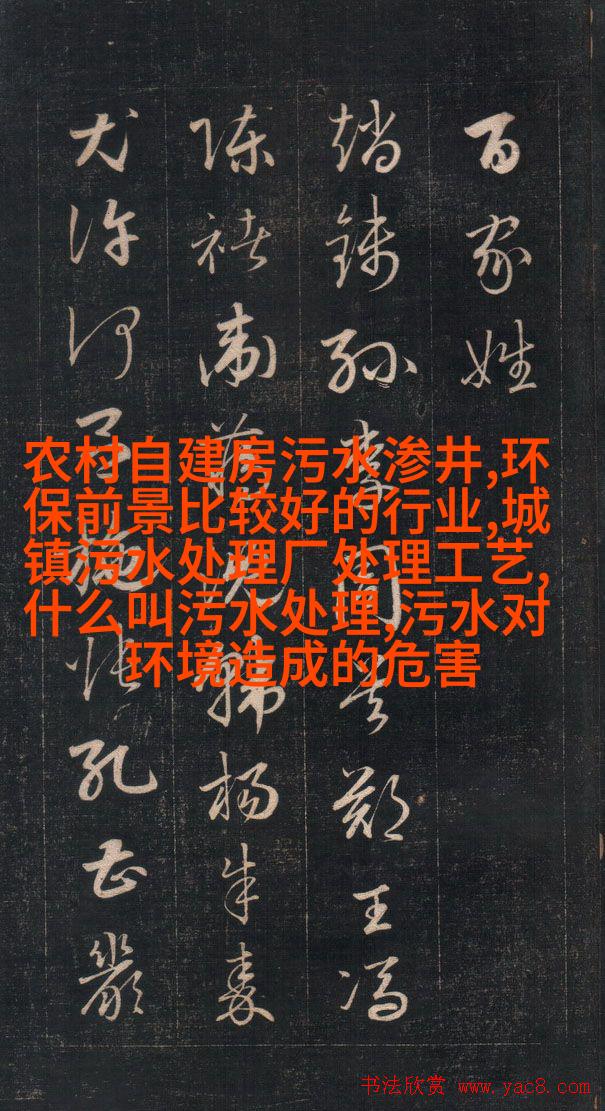 百家姓
趙錢孫李周吳鄭王馮
陳褚衛蔣沈韓楊朱秦
尤許何呂施張孔曹嚴
农村自建房污水渗井,环
保前景比较好的行业,城
镇污水处理厂处理工艺,
什么叫污水处理,污水对
环境造成的危害
书法欣赏 www.yac8.com